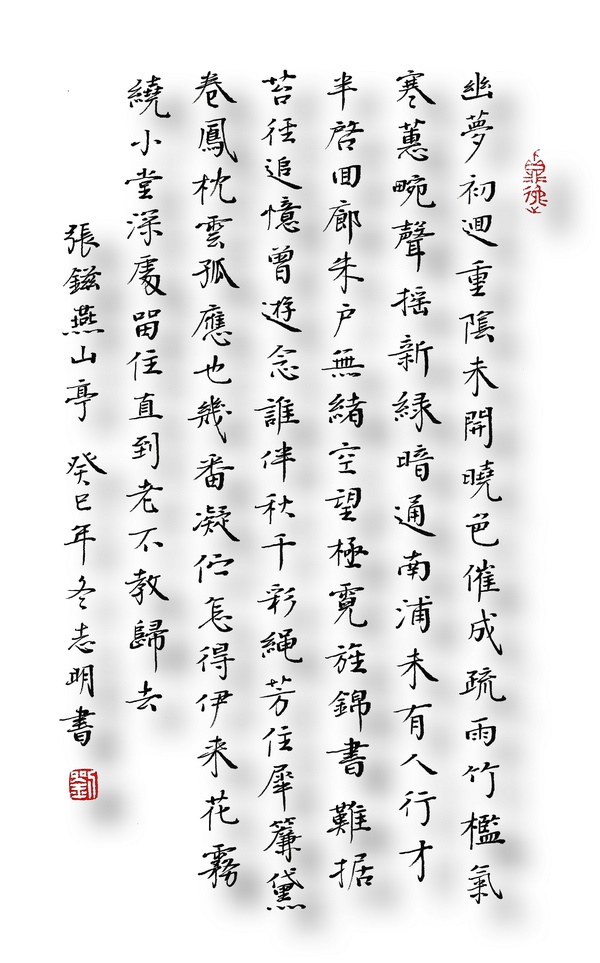 幽夢初逥重陰未開曉色催成疏雨竹檻氣
寒蕙畹聲摇新緑暗通南浦未有人行才
半啓囬廊朱户無緒空望極霓旌錦書難据
苔徑追憶曾遊念誰伴秋千彩繩芳住犀簾黛
卷鳳枕雲孤應也幾番凝佇怎得伊来花霧
繞小堂深處畱住直到老不教歸去
張鎡燕山亭 癸巳年冬志明書
劉